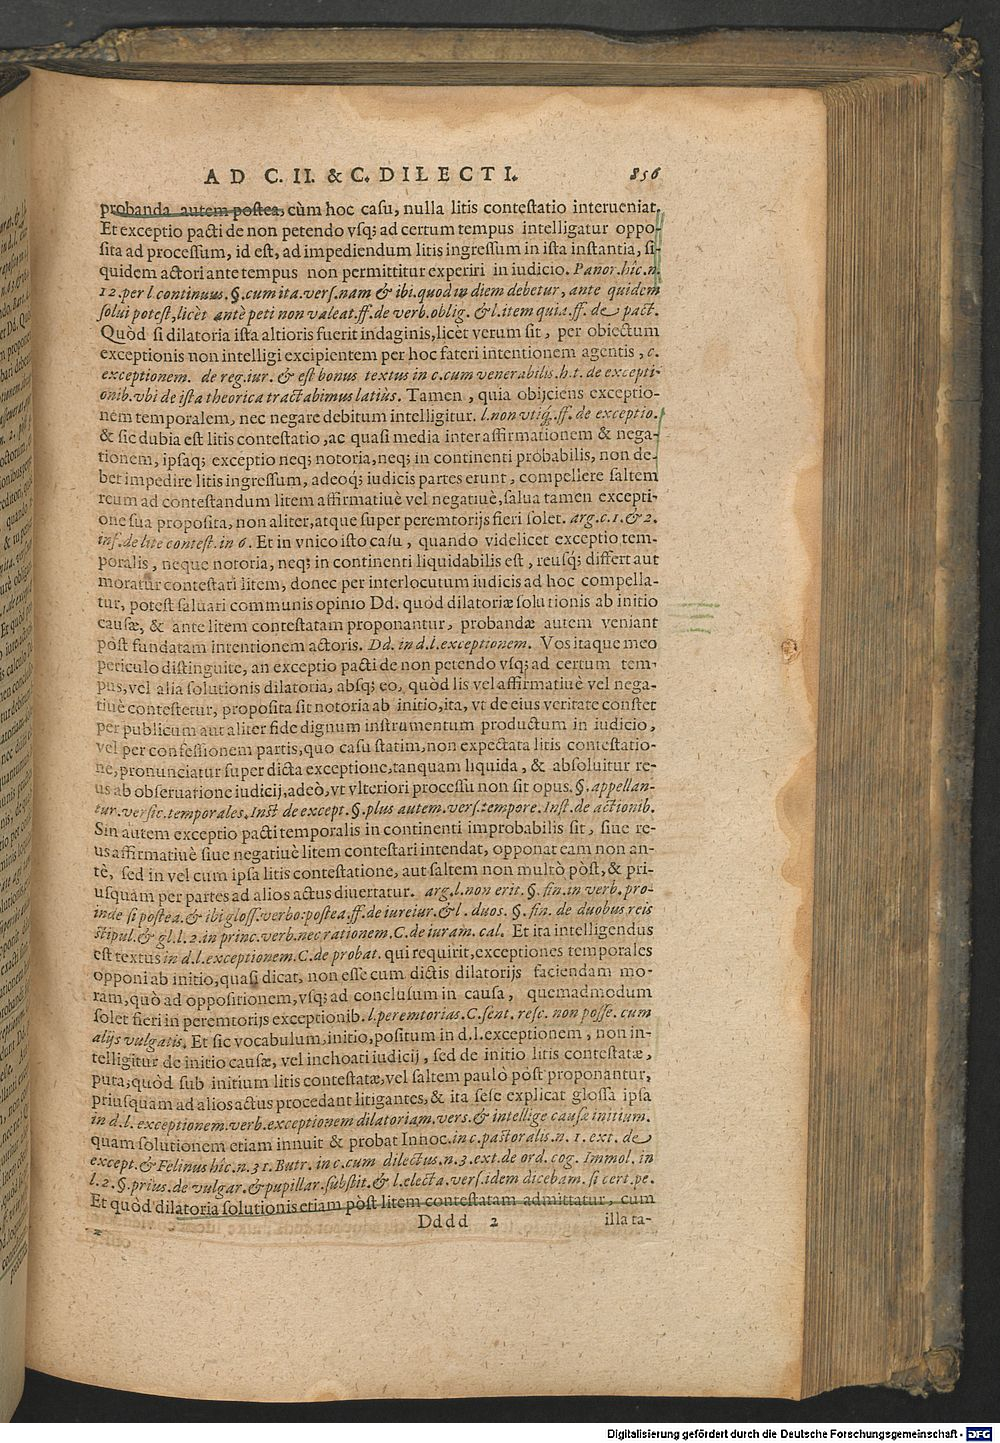 AD C. II. & C. DILECTI. 856
probanda autem postea, cùm hoc casu, nulla litis contestatio interueniat.
Et exceptio pacti de non petendo vsq; ad certum tempus intelligatur oppo-
sita ad processum, id est, ad impediendum litis ingressum in ista instantia, si-
quidem actori ante tempus non permittitur experiri in iudicio. Panor. hîc. n.
12. per l continuus. §. cum ita. vers. nam & ibi. quod in diem debetur, ante quidem
solui potest, licèt antè peti non valeat. ff. de verb. oblig. & l. item quia. ff. de pact.
Quòd si dilatoria ista altioris fuerit indaginis, licèt verum sit, per obiectum
exceptionis non intelligi excipientem per hoc fateri intentionem agentis, c.
exceptionem. de reg. iur. & est bonus textus in c. cum venerabilis. h. t. de excepti-
onib. vbi de ista theorica tractabimus latiùs. Tamen, quia obijciens exceptio-
nem temporalem, nec negare debitum intelligitur. l. non vtiq́. ff. de exceptio.
& sic dubia est litis contestatio, ac quasi media inter affirmationem & nega-
tionem, ipsaq; exceptio neq; notoria, neq; in continenti probabilis, non de-
bet impedire litis ingressum, adeoq́; iudicis partes erunt, compellere saltem
reum ad contestandum litem affirmatiuè vel negatiuè, salua tamen excepti-
one sua proposita, non aliter, atque super peremtorijs fieri solet. arg. c. 1. & 2.
inf. de lite contest. in 6. Et in vnico isto casu, quando videlicet exceptio tem-
poralis, neque notoria, neq; in continenti liquidabilis est, reusq́; differt aut
moratur contestari litem, donec per interlocutum iudicis ad hoc compella-
tur, potest saluari communis opinio Dd. quòd dilatoriæ solutionis ab initio
causæ, & ante litem contestatam proponantur, probandæ autem veniant
pòst fundatam intentionem actoris. Dd. in d. l. exceptionem. Vos itaque meo
periculo distinguite, an exceptio pacti de non petendo vsq; ad certum tem-
pus, vel alia solutionis dilatoria, absq; eo, quòd lis vel affirmatiuè vel nega-
tiuè contestetur, proposita sit notoria ab initio, ita, vt de eius veritate constet
per publicum aut aliter fide dignum instrumentum productum in iudicio,
vel per confessionem partis, quo casu statim, non expectata litis contestatio-
ne, pronunciatur super dicta exceptione, tanquam liquida, & absoluitur re-
us ab obseruatione iudicij, adeò, vt vlteriori processu non sit opus. §. appellan-
tur. versic. temporales. Inst de except. §. plus autem. vers. tempore. Inst. de actionib.
Sin autem exceptio pacti temporalis in continenti improbabilis sit, siue re-
us affirmatiuè siue negatiuè litem contestari intendat, opponat eam non an-
tè, sed in vel cum ipsa litis contestatione, aut saltem non multò pòst, & pri-
usquam per partes ad alios actus diuertatur. arg. l. non erit. §. fin. in verb. pro-
inde si postea. & ibi gloss. verbo: postea. ff. de iureiur. & l. duos. §. fin. de duobus reis
stipul. & gl. l. 2. in princ. verb. nec rationem. C. de iuram. cal. Et ita intelligendus
est textus in d. l. exceptionem. C. de probat. qui requirit, exceptiones temporales
opponi ab initio, quasi dicat, non esse cum dictis dilatorijs faciendam mo-
ram, quò ad oppositionem, vsq; ad conclusum in causa, quemadmodum
solet fieri in peremtorijs exceptionib. l. peremtorias. C. sent. resc. non posse. cum
alijs vulgatis. Et sic vocabulum, initio, positum in d. l. exceptionem, non in-
telligitur de initio causæ, vel inchoati iudicij, sed de initio litis contestatæ,
puta, quòd sub initium litis contestatæ, vel saltem paulò pòst proponantur,
priusquam ad alios actus procedant litigantes, & ita sese explicat glossa ipsa
in d. l. exceptionem. verb. exceptionem dilatoriam. vers. & intellige causæ initium.
quam solutionem etiam innuit & probat Innoc. in c. pastoralis. n. 1. ext. de
except. & Felinus hîc. n. 31. Butr. in c. cum dilectus. n. 3. ext. de ord. cog. Immol. in
l. 2. §. prius. de vulgar. & pupillar. substit. & l. electa. vers. idem dicebam. si cert. pe.
Et quòd dilatoria solutionis etiam pòst litem contestatam admittatur, cum
Dddd 2 illa ta-
Digitalisierung gefördert durch die Deutsche Forschungsgemeinschaft - DFG